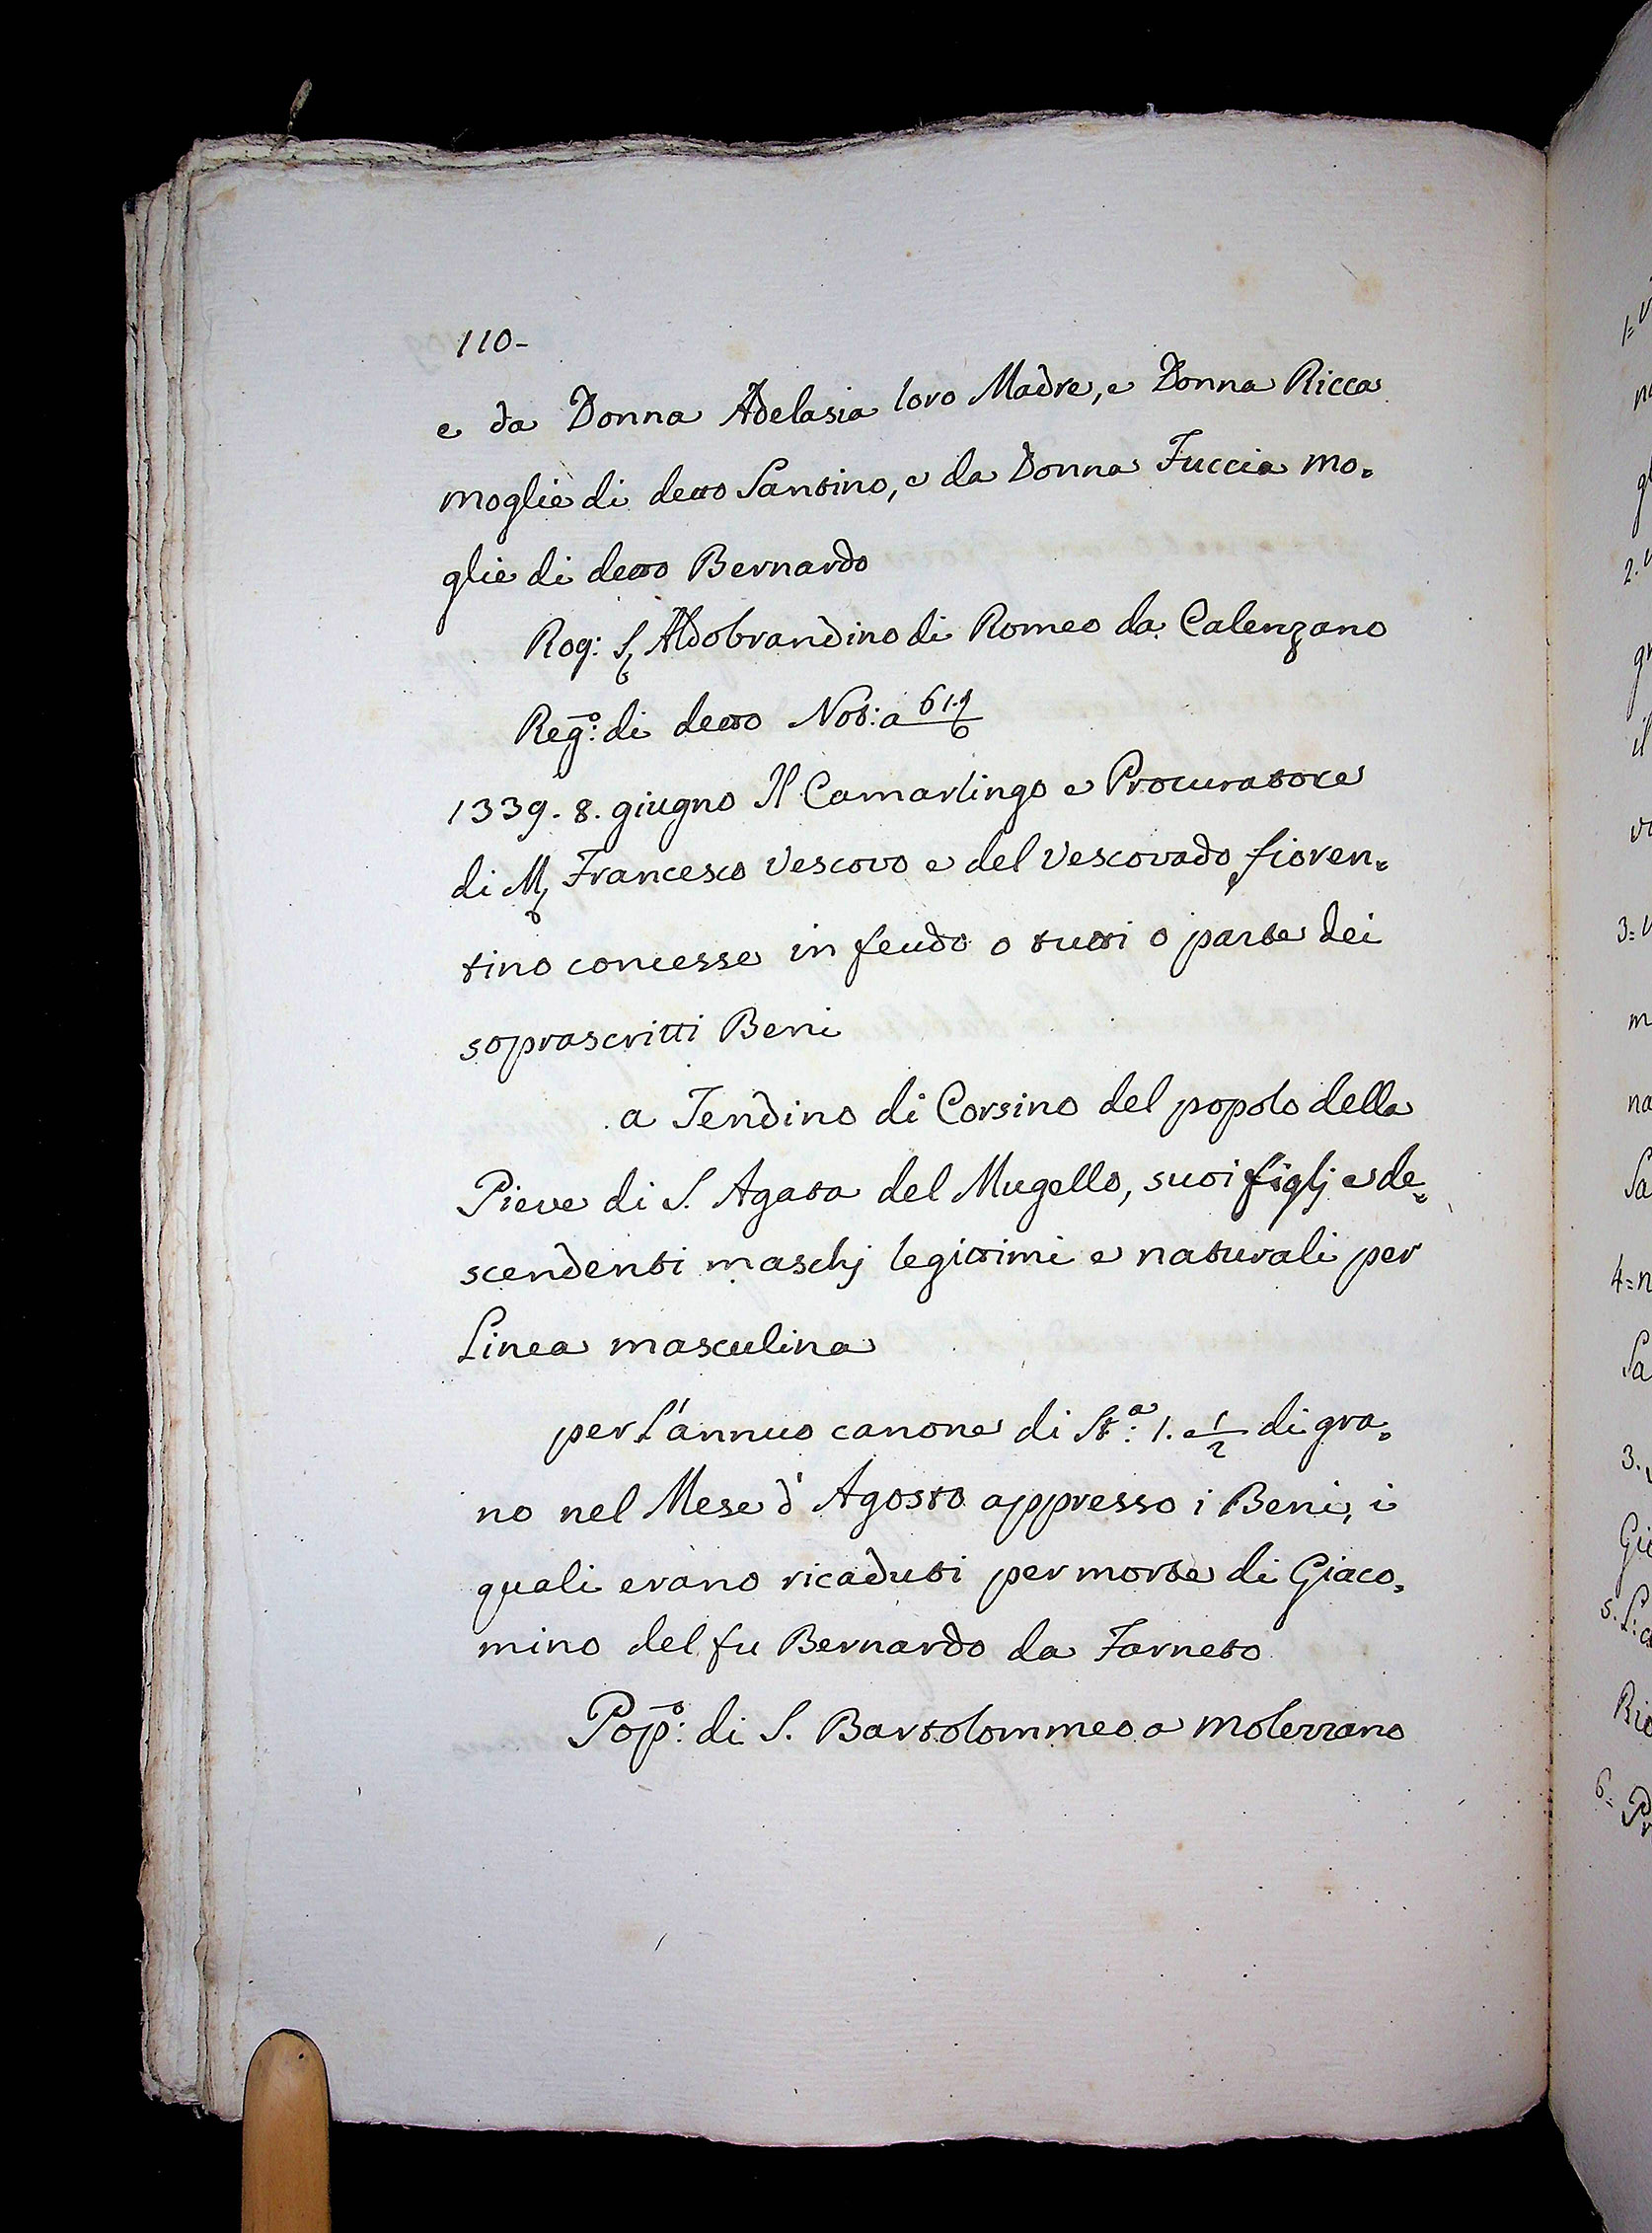 110-
e da Donna Adelasia loro Madre, e Donna Ricca
moglie di detto Santino, e da Donna Fuccia mo=
glie di detto Bernardo
Rog: S. Aldobrandino di Romeo da Calenzano
Reg.º: di detto Not: a 61.
1339. 8. giugno Il Camarlingo e Procuratore
di M. Francesco Vescovo e del Vescovado fioren=
tino concesse in feudo o tutti o parte dei
soprascritti Beni
a Tendino di Corsino del popolo della
Pieve di S. Agata del Mugello, suoi figlj e de=
scendenti maschj legittimi e naturali per
Linea masculina
per L'annuo canone di St.ª: 1. e 1/2 di gra=
no nel Mese d'Agosto appresso i Beni, i
quali erano ricaduti per morte di Giaco=
mino del fu Bernardo da Farneto
Pop.º: di S. Bartolommeo a Molezzano